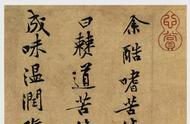 余酷嗜苦
曰棘道苦
成味温润